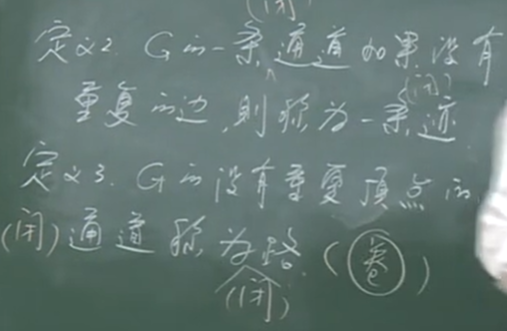 (闭)
定义2. G的一条通道如果没有
(闭)
重复的边,则称为一条迹.
定义3. G的没有重复顶点的
(闭)通道称为路. (圈)
(闭)